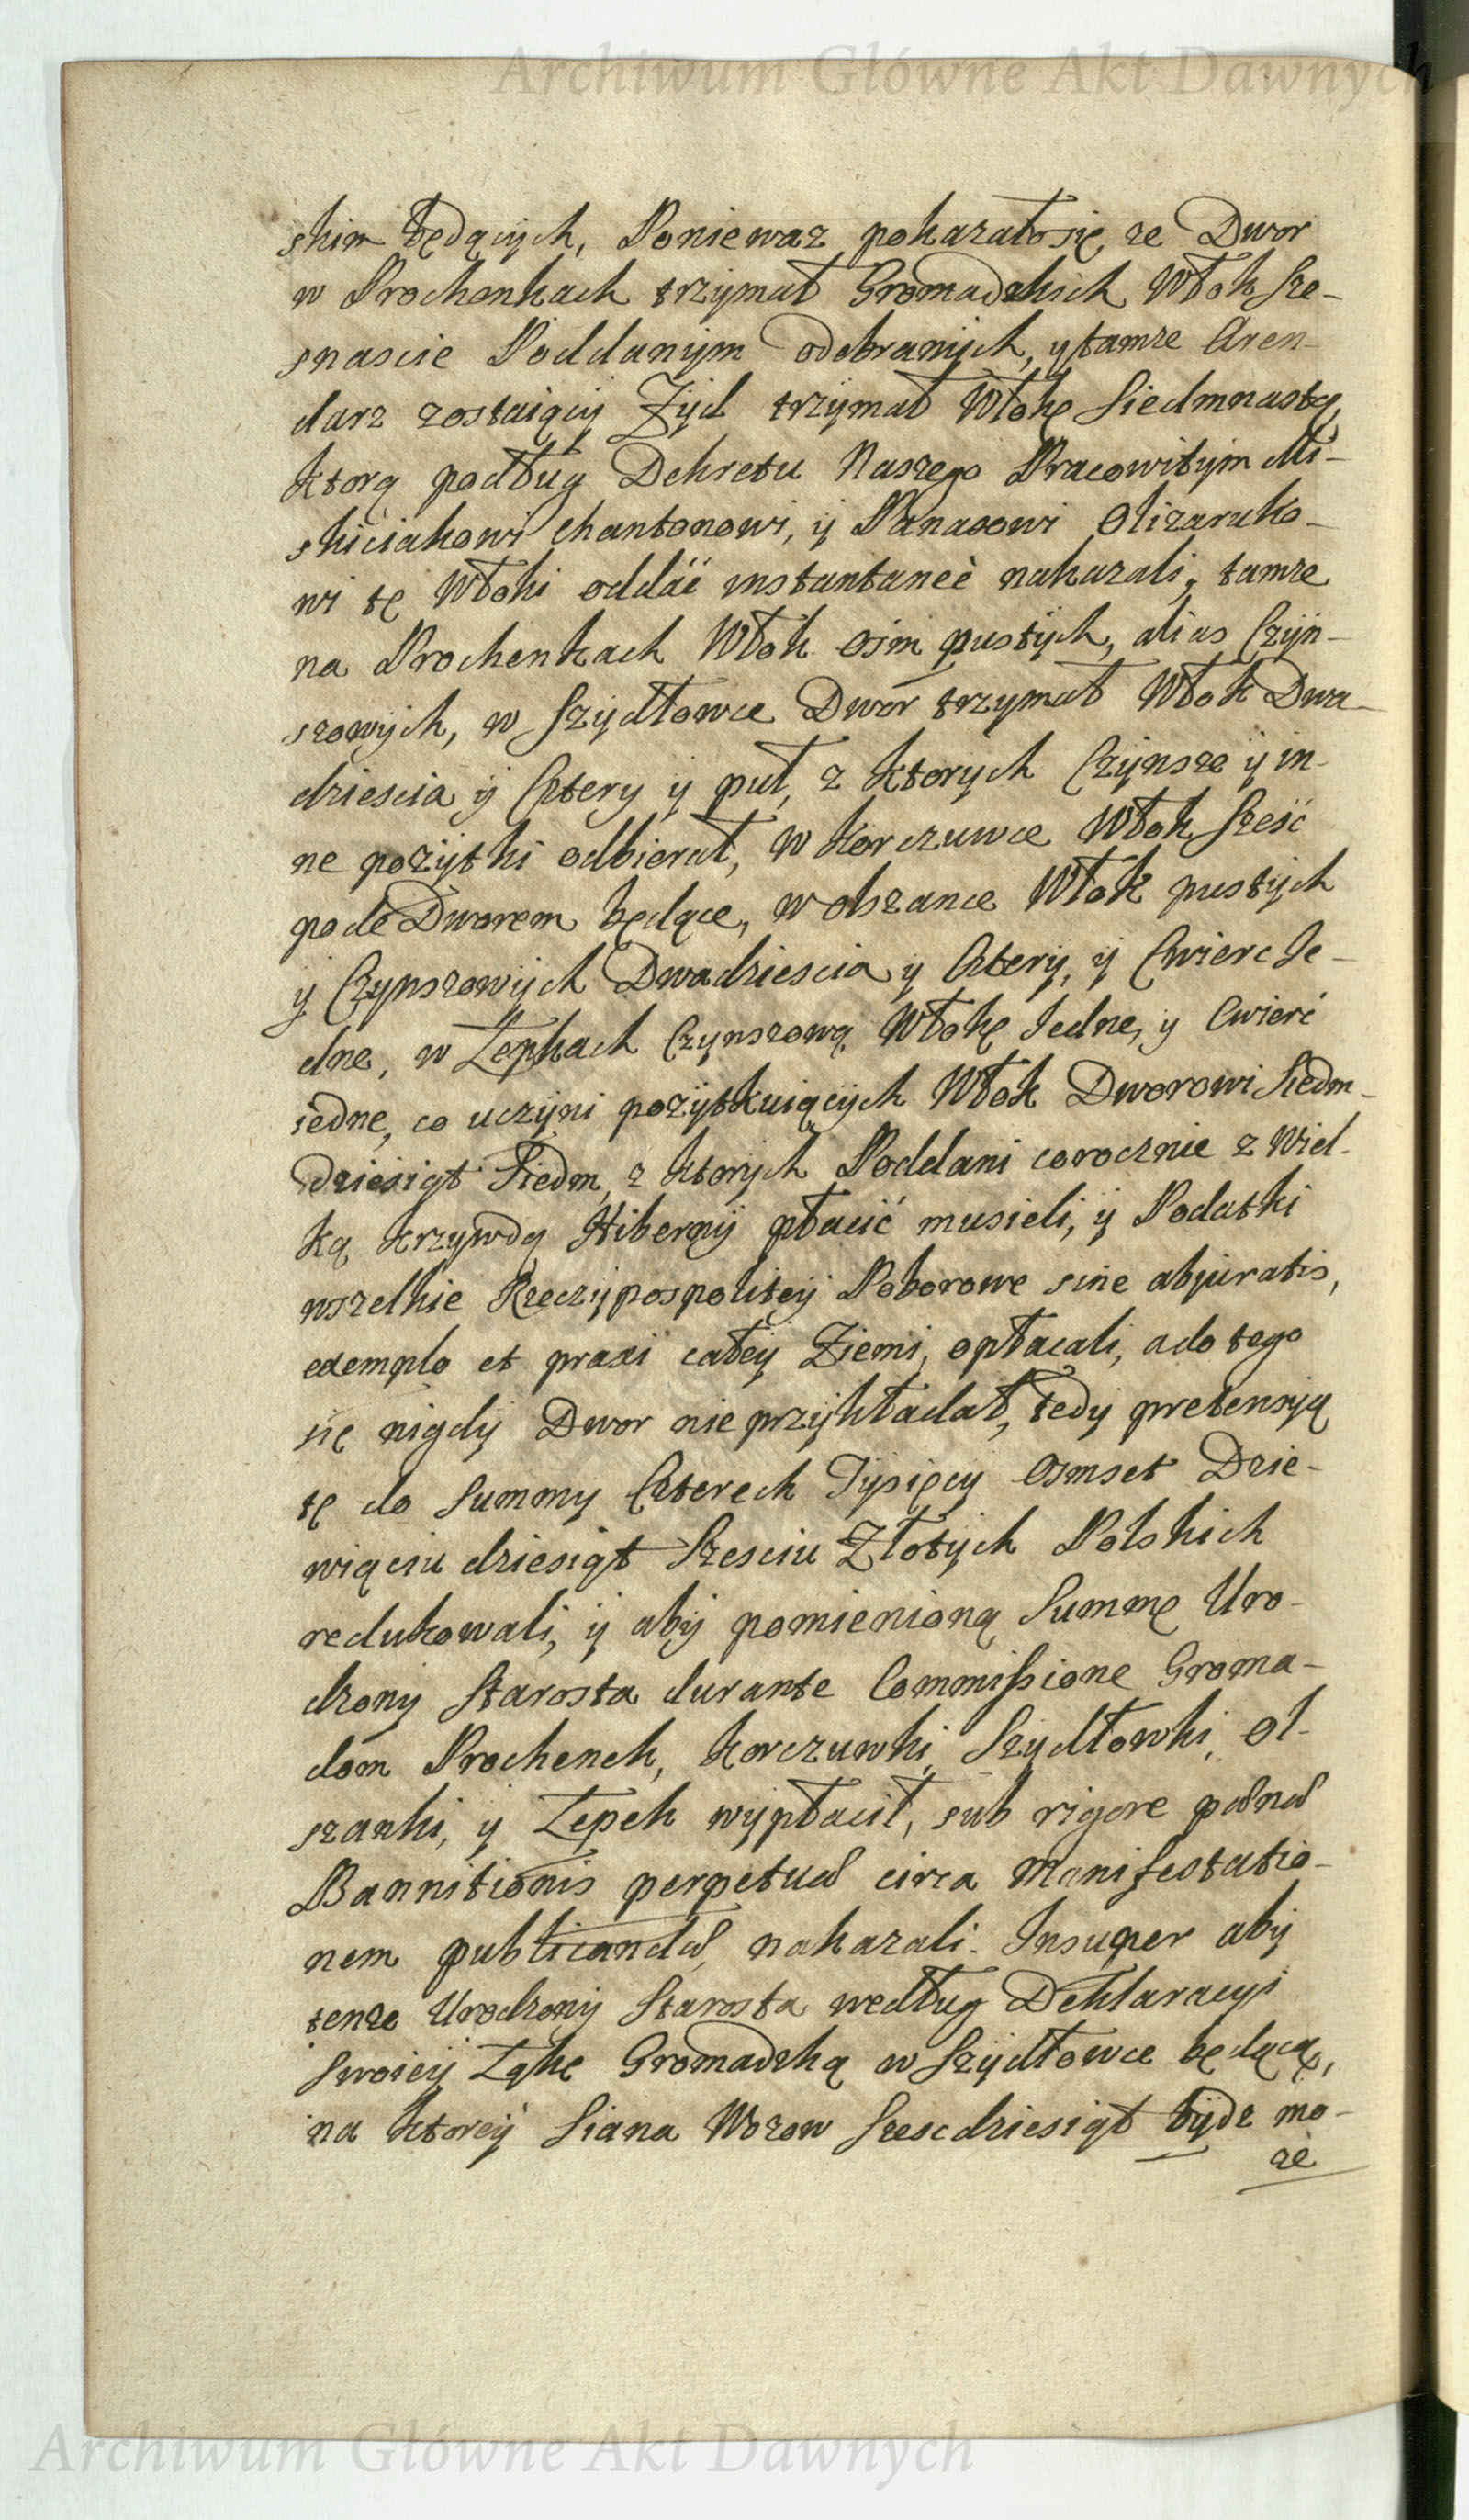 Archiwum Główne Akt Dawnych
skim będących, Poniewaz pokazałosię ze Dwor
w Prochenkach trzymał Gromadzkich Włok Sze-
snascie Poddanym odebranych, y tamze Aren-
darz zostaiący Zyd trzymał Włokę Siedmnastą,
ktorą podług Dekretu Naszego Pracowitym Mi-
skiciakowi Chantonowi, y Panasowi Olizaruko-
wi tę Włoki oddać instantaneè nakazali, tamze
na Prochenkach Włok Osim pustych, alias Czyn-
szowych, w Szydłowce Dwor trzymał Włok Dwa-
dziescia y Cztery y puł, z ktorych Czynsze y in-
ne pozytki odbierał, w Korczuwce Włok Szesć
pode Dworem będące, w Olszance Włok pustych
y Czynszowych Dwadziescia y Cztery, y Cwierc Je-
dne, w Łepkach Czynszową Włokę Jedne, y Cwierć
iedne, co uczyni pozytkuiących Włok Dworowi Siedm-
dziesiąt Siedm, z ktorych Poddani corocznie z Wiel-
ką krzywdą Hiberny płacić musieli, y Podatki
wszelkie Rzeczypospolitey Poborowe sine abjuratis,
exemplo et praxi całey Ziemi, opłacali, a do tego
się nigdy Dwor nie przykładał, tedy pretensyą
tę do Summy Czterech Tysięcy Osmset Dzie-
wiąciu dziesiąt Szesciu Złotych Polskich
redukowali, y aby pomienioną Summę Uro-
dzony Starosta durante Commissione Groma-
dom Prochenek, Korczuwki, Szydłowki, Ol-
szanki, y Łepek wypłacił, sub rigore pænæ
Bannitionis perpetuæ circa Manifestatio-
nem publicandæ, nakazali. Insuper aby
tenze Urodzony Starosta według Deklaracyi
Swoiey Łąkę Gromadzką w Szydłowce będącą,
na ktorey Siana Wozow Szescdziesiąt bydz mo-
ze
Archiwum Główne Akt Dawnych